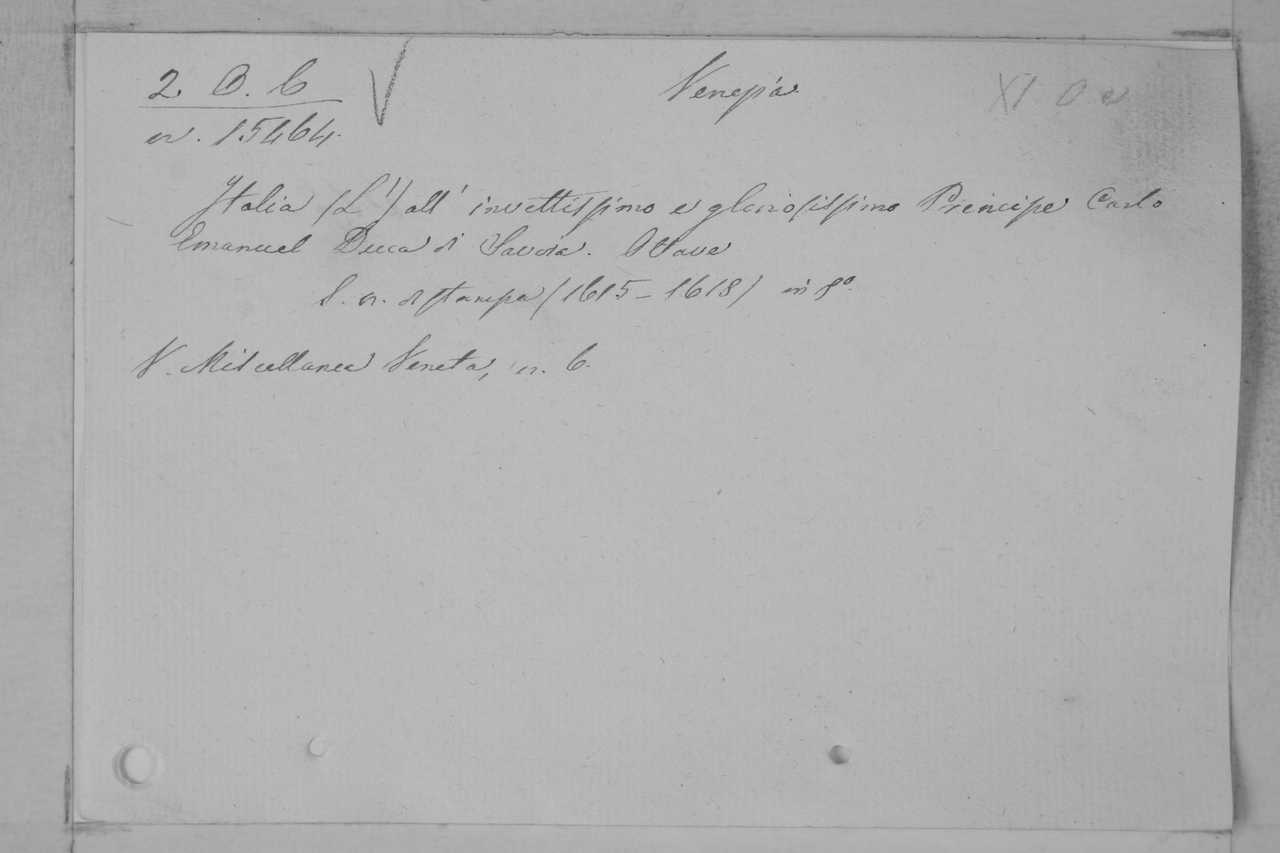 2. B. 6 Venezia XI O e
n. 15464.
Italia (L') all' invettissimo e gloriosissimo Principe Carlo
Emanuel Duca di Savoia. Ottave
S. n. di stampa (1615-1618) in 8º.
V. Miscellanea Veneta, n. 6.